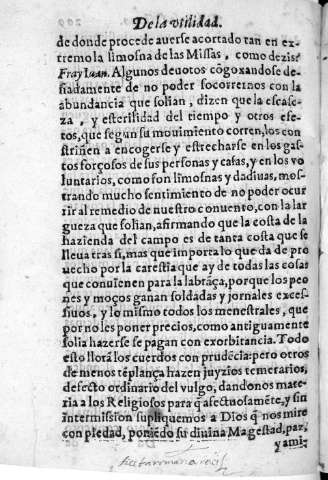 De la vtilidad.
de donde procede auerse acortado tan en ex-
tremo la limosna de las Missas, como dezis?
Fray Iuan. Algunos deuotos cõgoxandose de-
masiadamente de no poder socorrernos con la
abundancia que solian, dizen que la escase-
za, y esterilidad del tiempo y otros efe-
tos, que segun su mouimiento corren, los con
striñen a encogerse y estrecharse en los gas-
tos forçosos de sus personas y casas, y en los vo
luntarios, como son limosnas y dadiuas, mos-
trando mucho sentimiento de no poder ocur
rir al remedio de nuestro conuento, con la lar
gueza que solian, afirmando que la costa de la
hazienda del campo es de tanta costa que se
lleua tras si, mas que importa lo que da de pro
uecho por la carestia que ay de todas las cosas
que conuienen para la labrãça, porque los peo
nes y moços ganan soldadas y jornales exces-
siuos, y lo mismo todos los menestrales, que
por no les poner precios, como antiguamente
solia hazerse se pagan con exorbitancia. Todo
esto llorã los cuerdos con prudẽcia: pero otros
de menos tẽplança hazen juyzios temerarios,
defecto ordinario del vulgo, dandonos mate-
ria a los Religiosos para q̃ afectuosamẽte, y sin
intermission supliquemos a Dios q̃ nos mire
con piedad, poniẽdo su diuina Magestad, paz,
y ami-